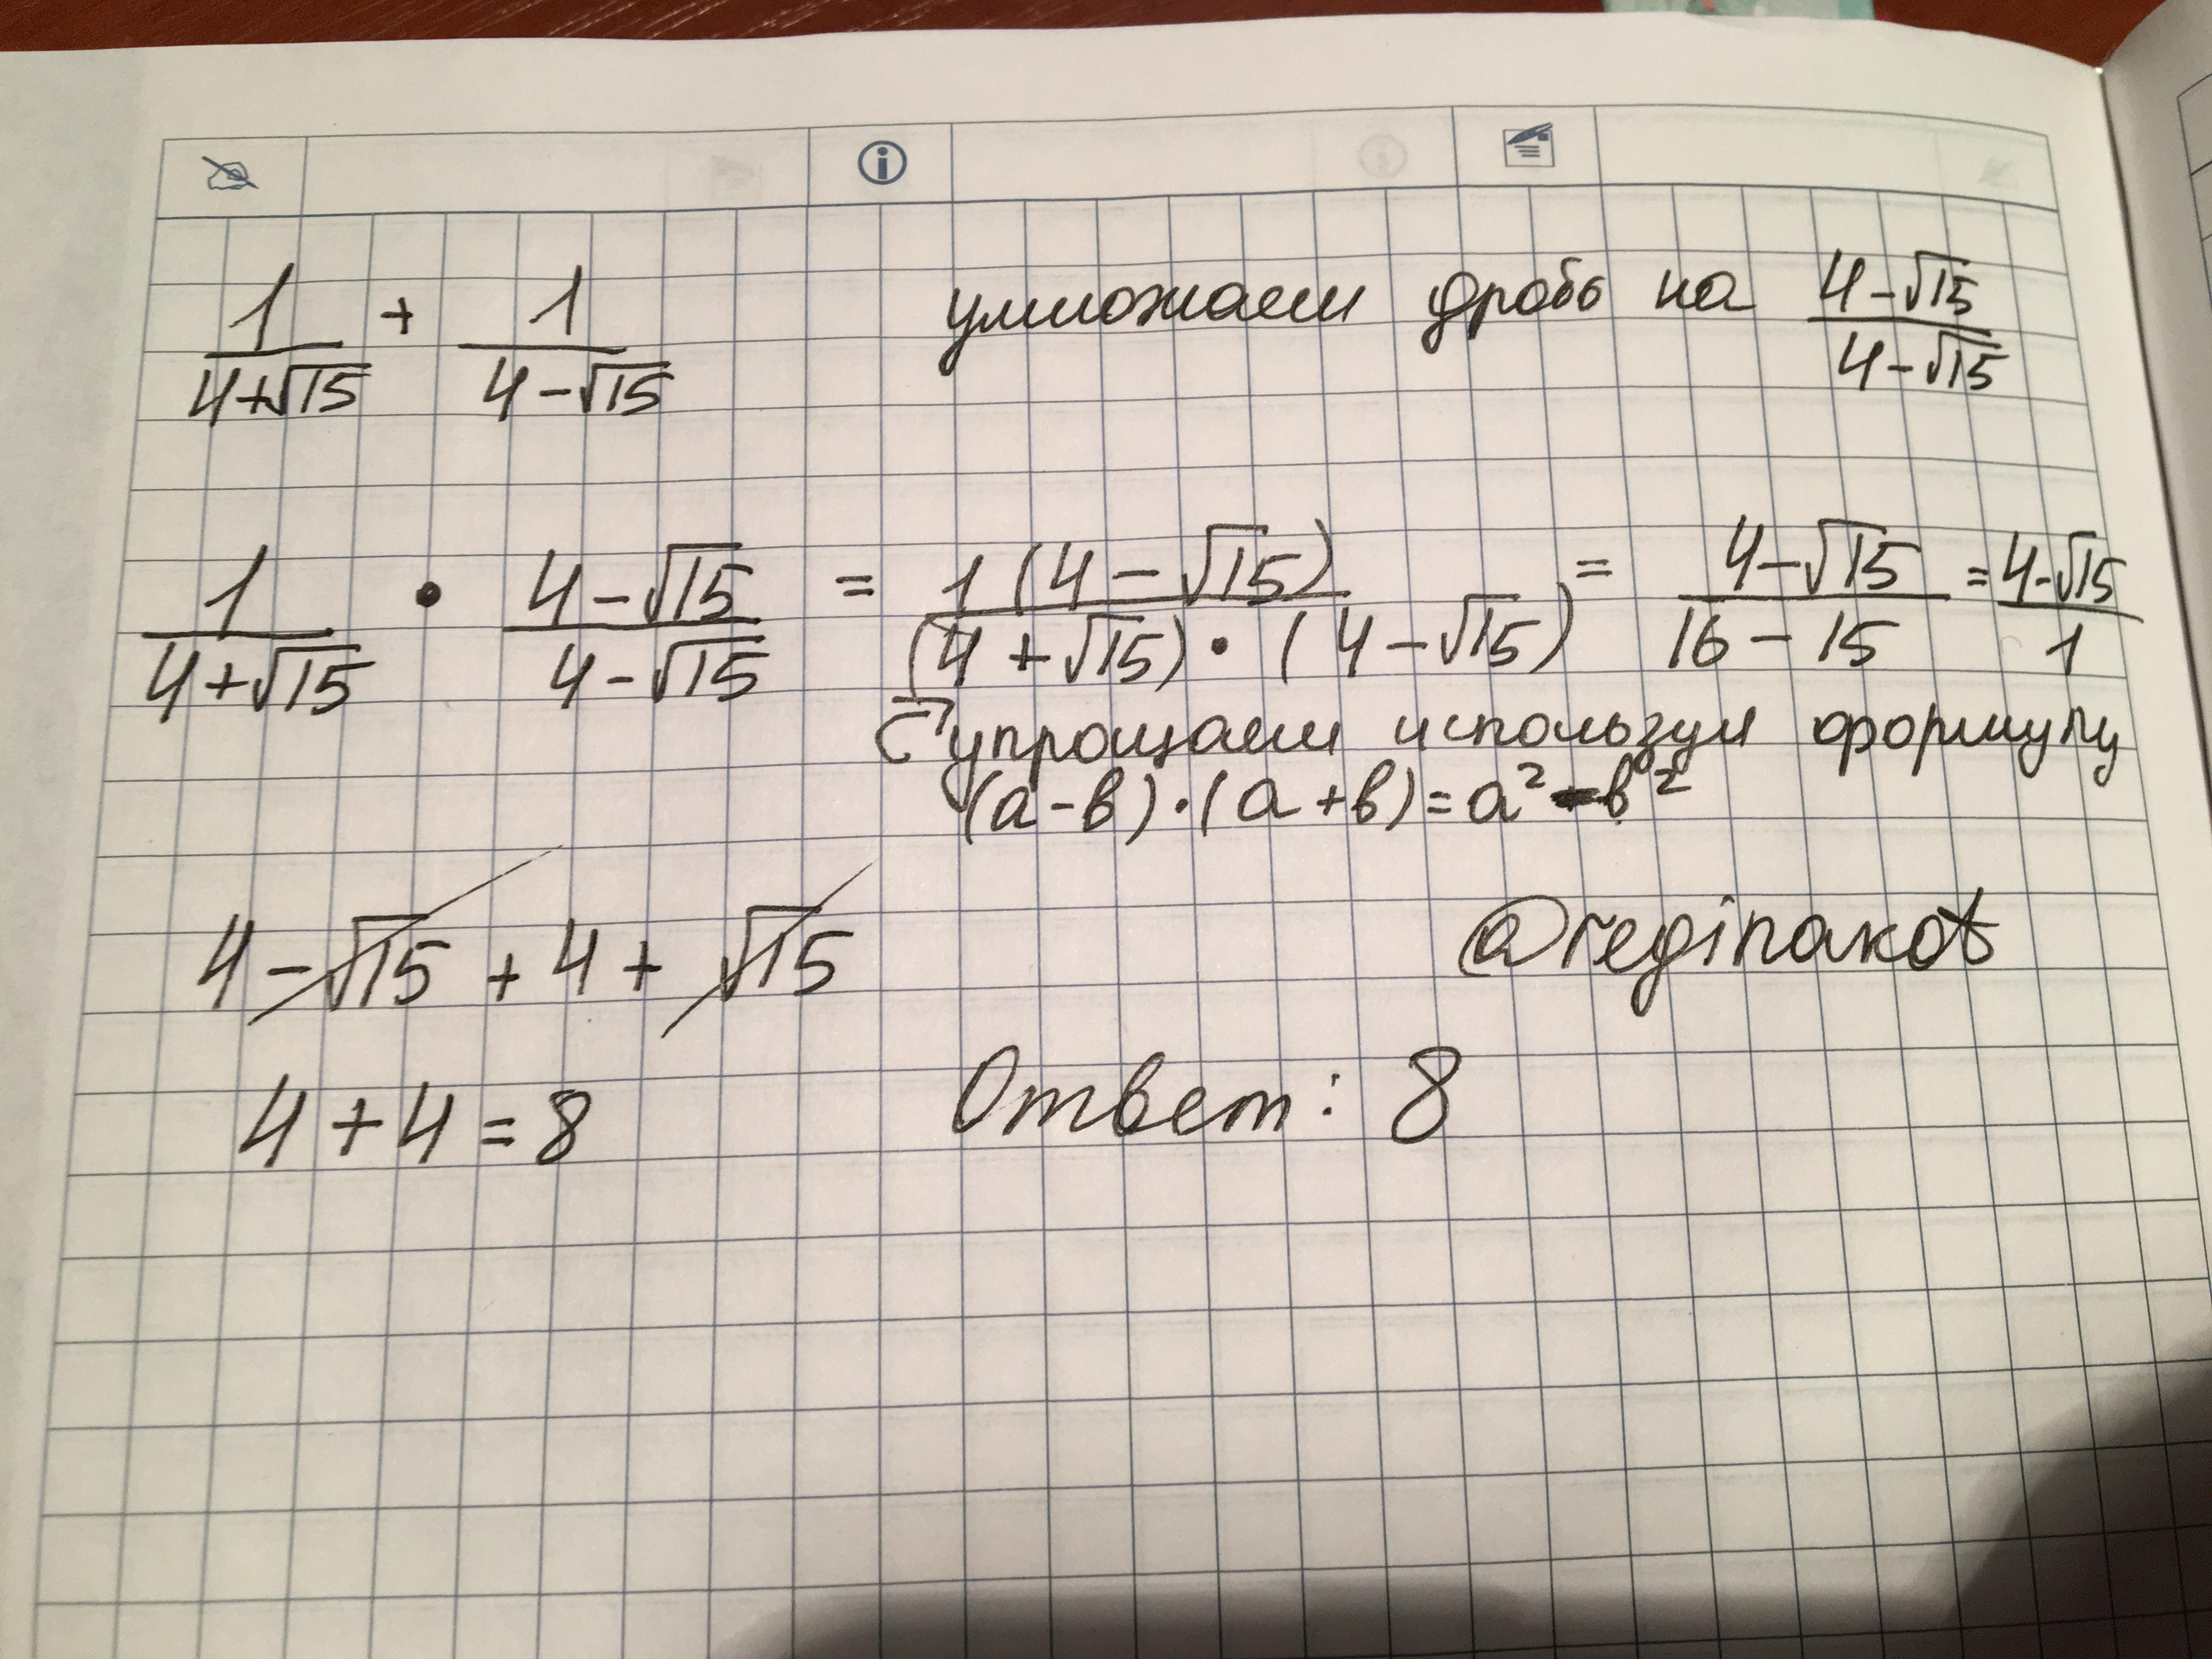 1/(4+√15) + 1/(4-√15) умножаем дробь на (4-√15)/(4-√15)
1/(4+√15) • (4-√15)/(4-√15) = 1(4-√15)/((4+√15)•(4-√15)) = (4-√15)/(16-15) = (4-√15)/1
упрощаем используя формулу
(а-в)•(а+в)=а²-в²
4-√15+4+√15
@reginakot
4+4=8 Ответ: 8